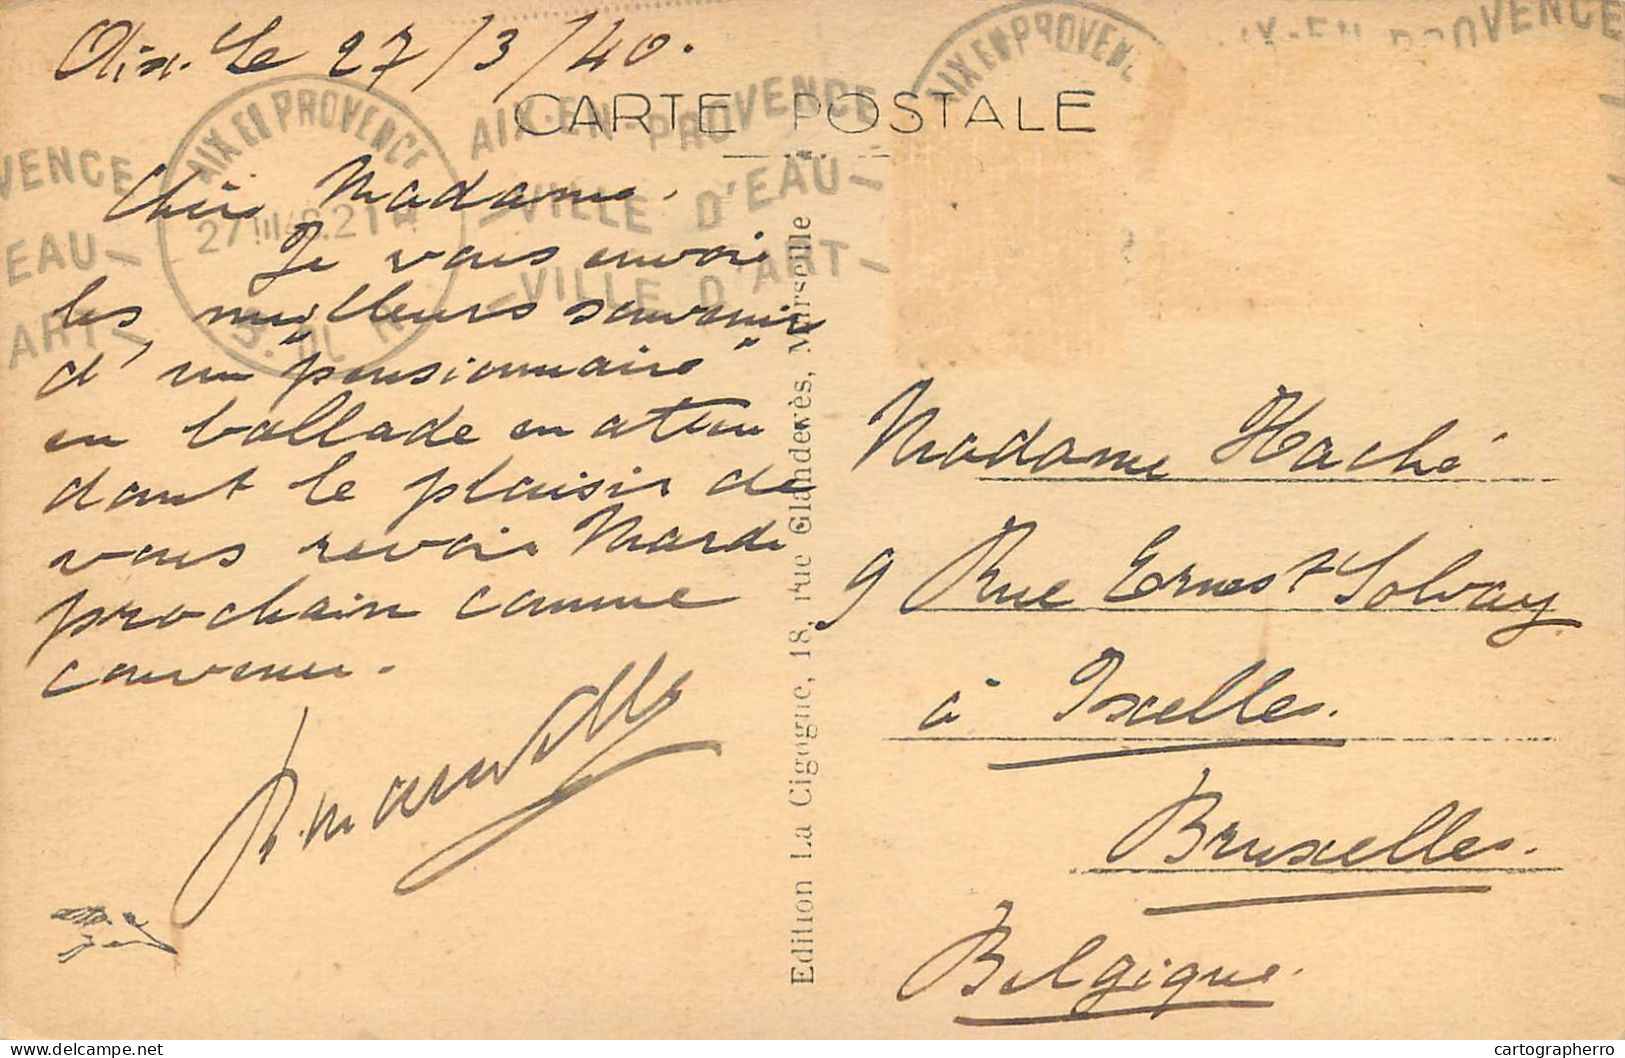 Aix. le 27/3/40.
CARTE POSTALE
AIX EN PROVENCE
27 III 40.21
B. DU R
AIX-EN-PROVENCE
-VILLE D'EAU-
-VILLE D'ART-
VENCE
EAU-
ART-
AIX EN PROVENCE
AIX-EN-PROVENCE
Chère Madame.
Je vous envoie
les meilleurs souvenirs
d'un "pensionnaire"
en ballade en atten
dant le plaisir de
vous revoir Mardi
prochain comme
convenu.
Edition La Cigogne, 18, rue Glandevès, Marseille
Madame Haché
9 Rue Ernest Solvay
à Ixelles.
Bruxelles.
Belgique.
cartographerro